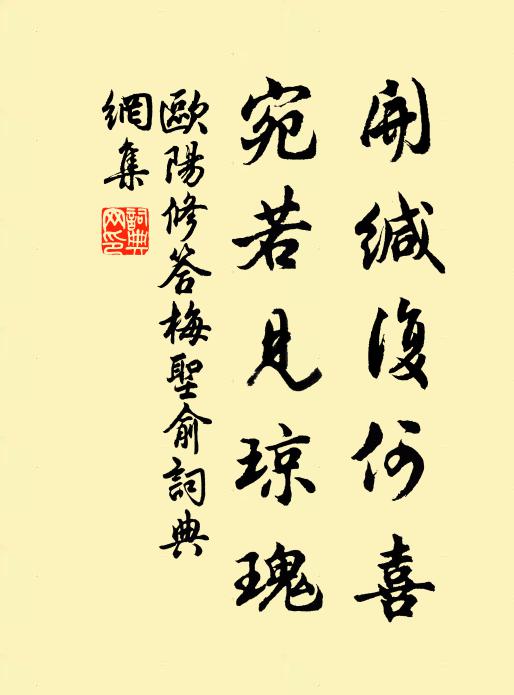 開緘復何喜
宛若見琼瑰
歐陽修答梅聖俞詞典
網集
詞典
网印